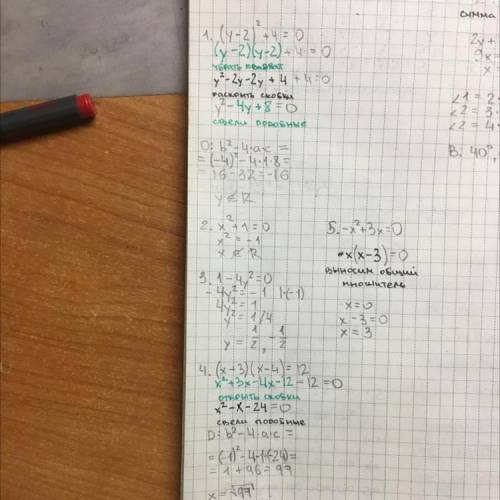 сумма
1. (y-2)² + 4 = 0
(y-2)(y-2) + 4 = 0
убрать квадрат
y² - 2y - 2y + 4 + 4 = 0
раскрыть скобки
y² - 4y + 8 = 0
свели подобные
D: b² - 4·a·c =
= (-4)² - 4·1·8 =
= 16 - 32 = -16
y ∉ R
2. x² + 1 = 0
x² = -1
x ∉ R
3. 1 - 4y² = 0
- 4y² = - 1 | ·(-1)
4y² = 1
y² = 1/4
y = 1/2, -1/2
4. (x+3)(x-4) = 12
x² + 3x - 4x - 12 - 12 = 0
открыть скобки
x² - x - 24 = 0
свели подобные
D: b² - 4·a·c =
= (-1)² - 4·1·(-24) =
= 1 + 96 = 97
x = √97
5. -x² + 3x = 0
-x(x-3) = 0
выносим общий
множитель
x = 0
x - 3 = 0
x = 3
2y +
9x =
x
∠1 = 2·
∠2 = 3·
∠2 = 4·
В: 40°,